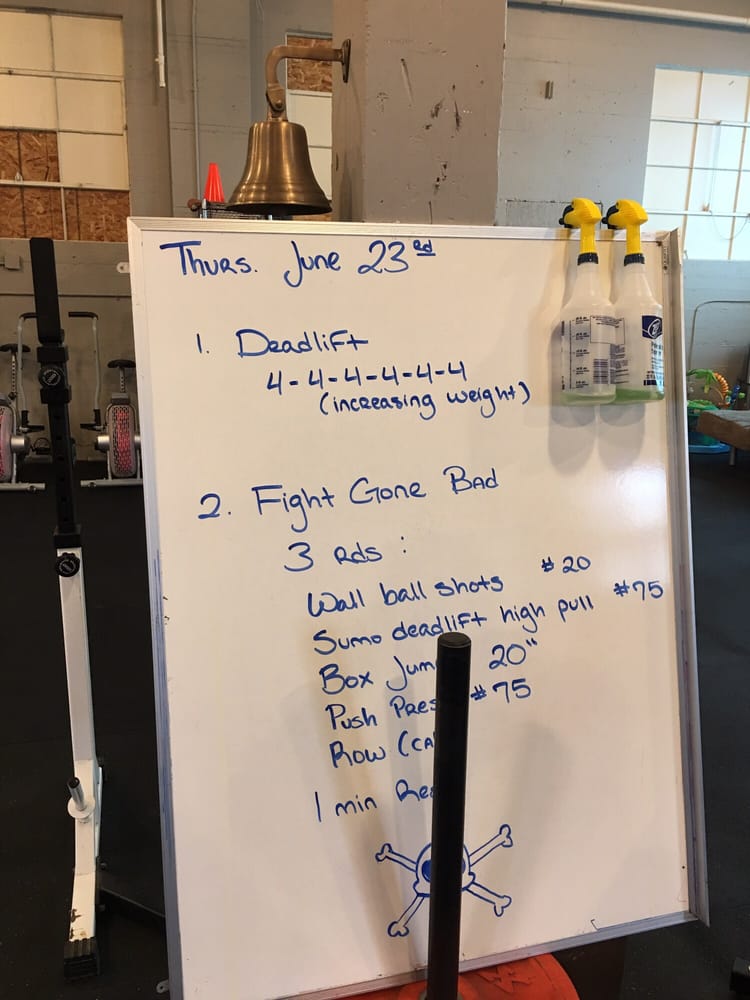 Thurs. June 23rd
1. Deadlift
4-4-4-4-4-4
(increasing weight)
2. Fight Gone Bad
3 Rds :
Wall ball shots #20
Sumo deadlift high pull #75
Box 20"
Push #75
Row
1 min